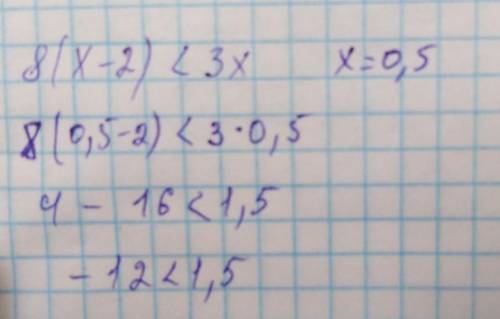 8(x-2) < 3x x=0,5
8(0,5-2) < 3·0,5
4 - 16 < 1,5
-12 < 1,5